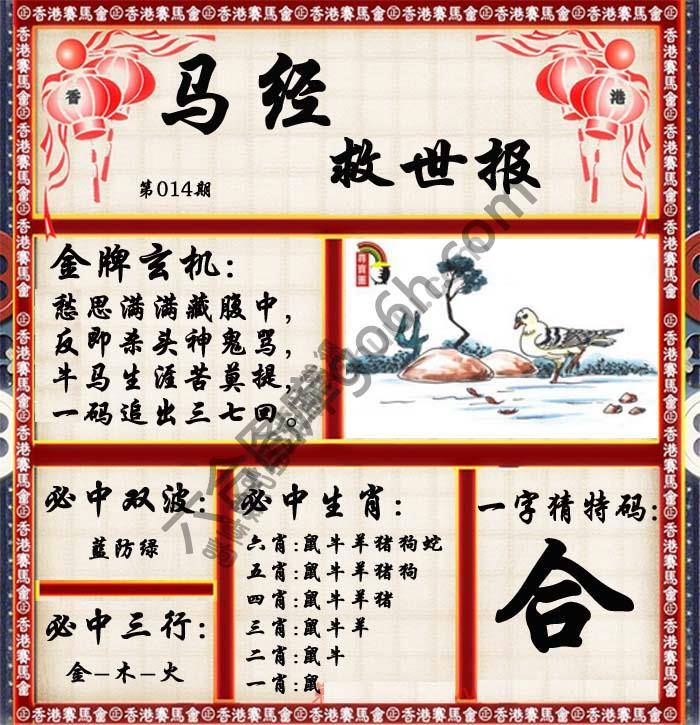 香港賽馬會
香
港
马经
救世报
第014期
金牌玄机:
愁思满满藏腹中,
反即杀头神鬼骂,
牛马生涯苦莫提,
一码追出三七回。
必中双波:
蓝防绿
必中三行:
金-木-火
必中生肖:
六肖:鼠牛羊猪狗蛇
五肖:鼠牛羊猪狗
四肖:鼠牛羊猪
三肖:鼠牛羊
二肖:鼠牛
一肖:鼠
一字猜特码:
合